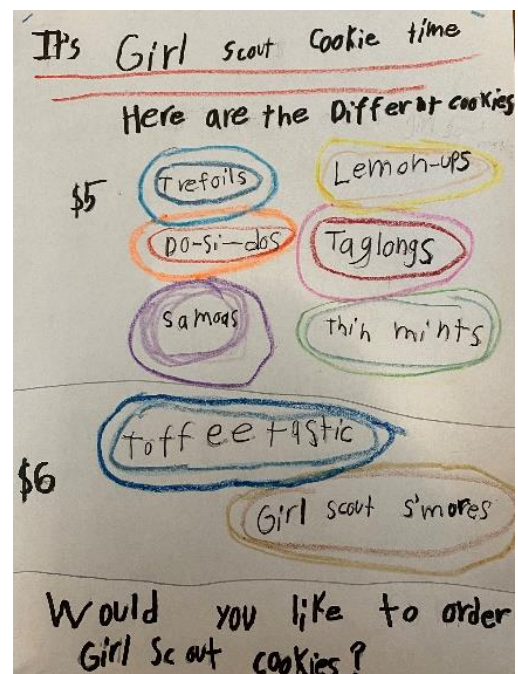 It's Girl Scout Cookie time
Here are the Differnt cookies
$5
Trefoils
Lemon-ups
Do-si-dos
Taglongs
Samoas
thin mints
$6
toffee tastic
Girl scout s'mores
Would you like to order
Girl Scout cookies?